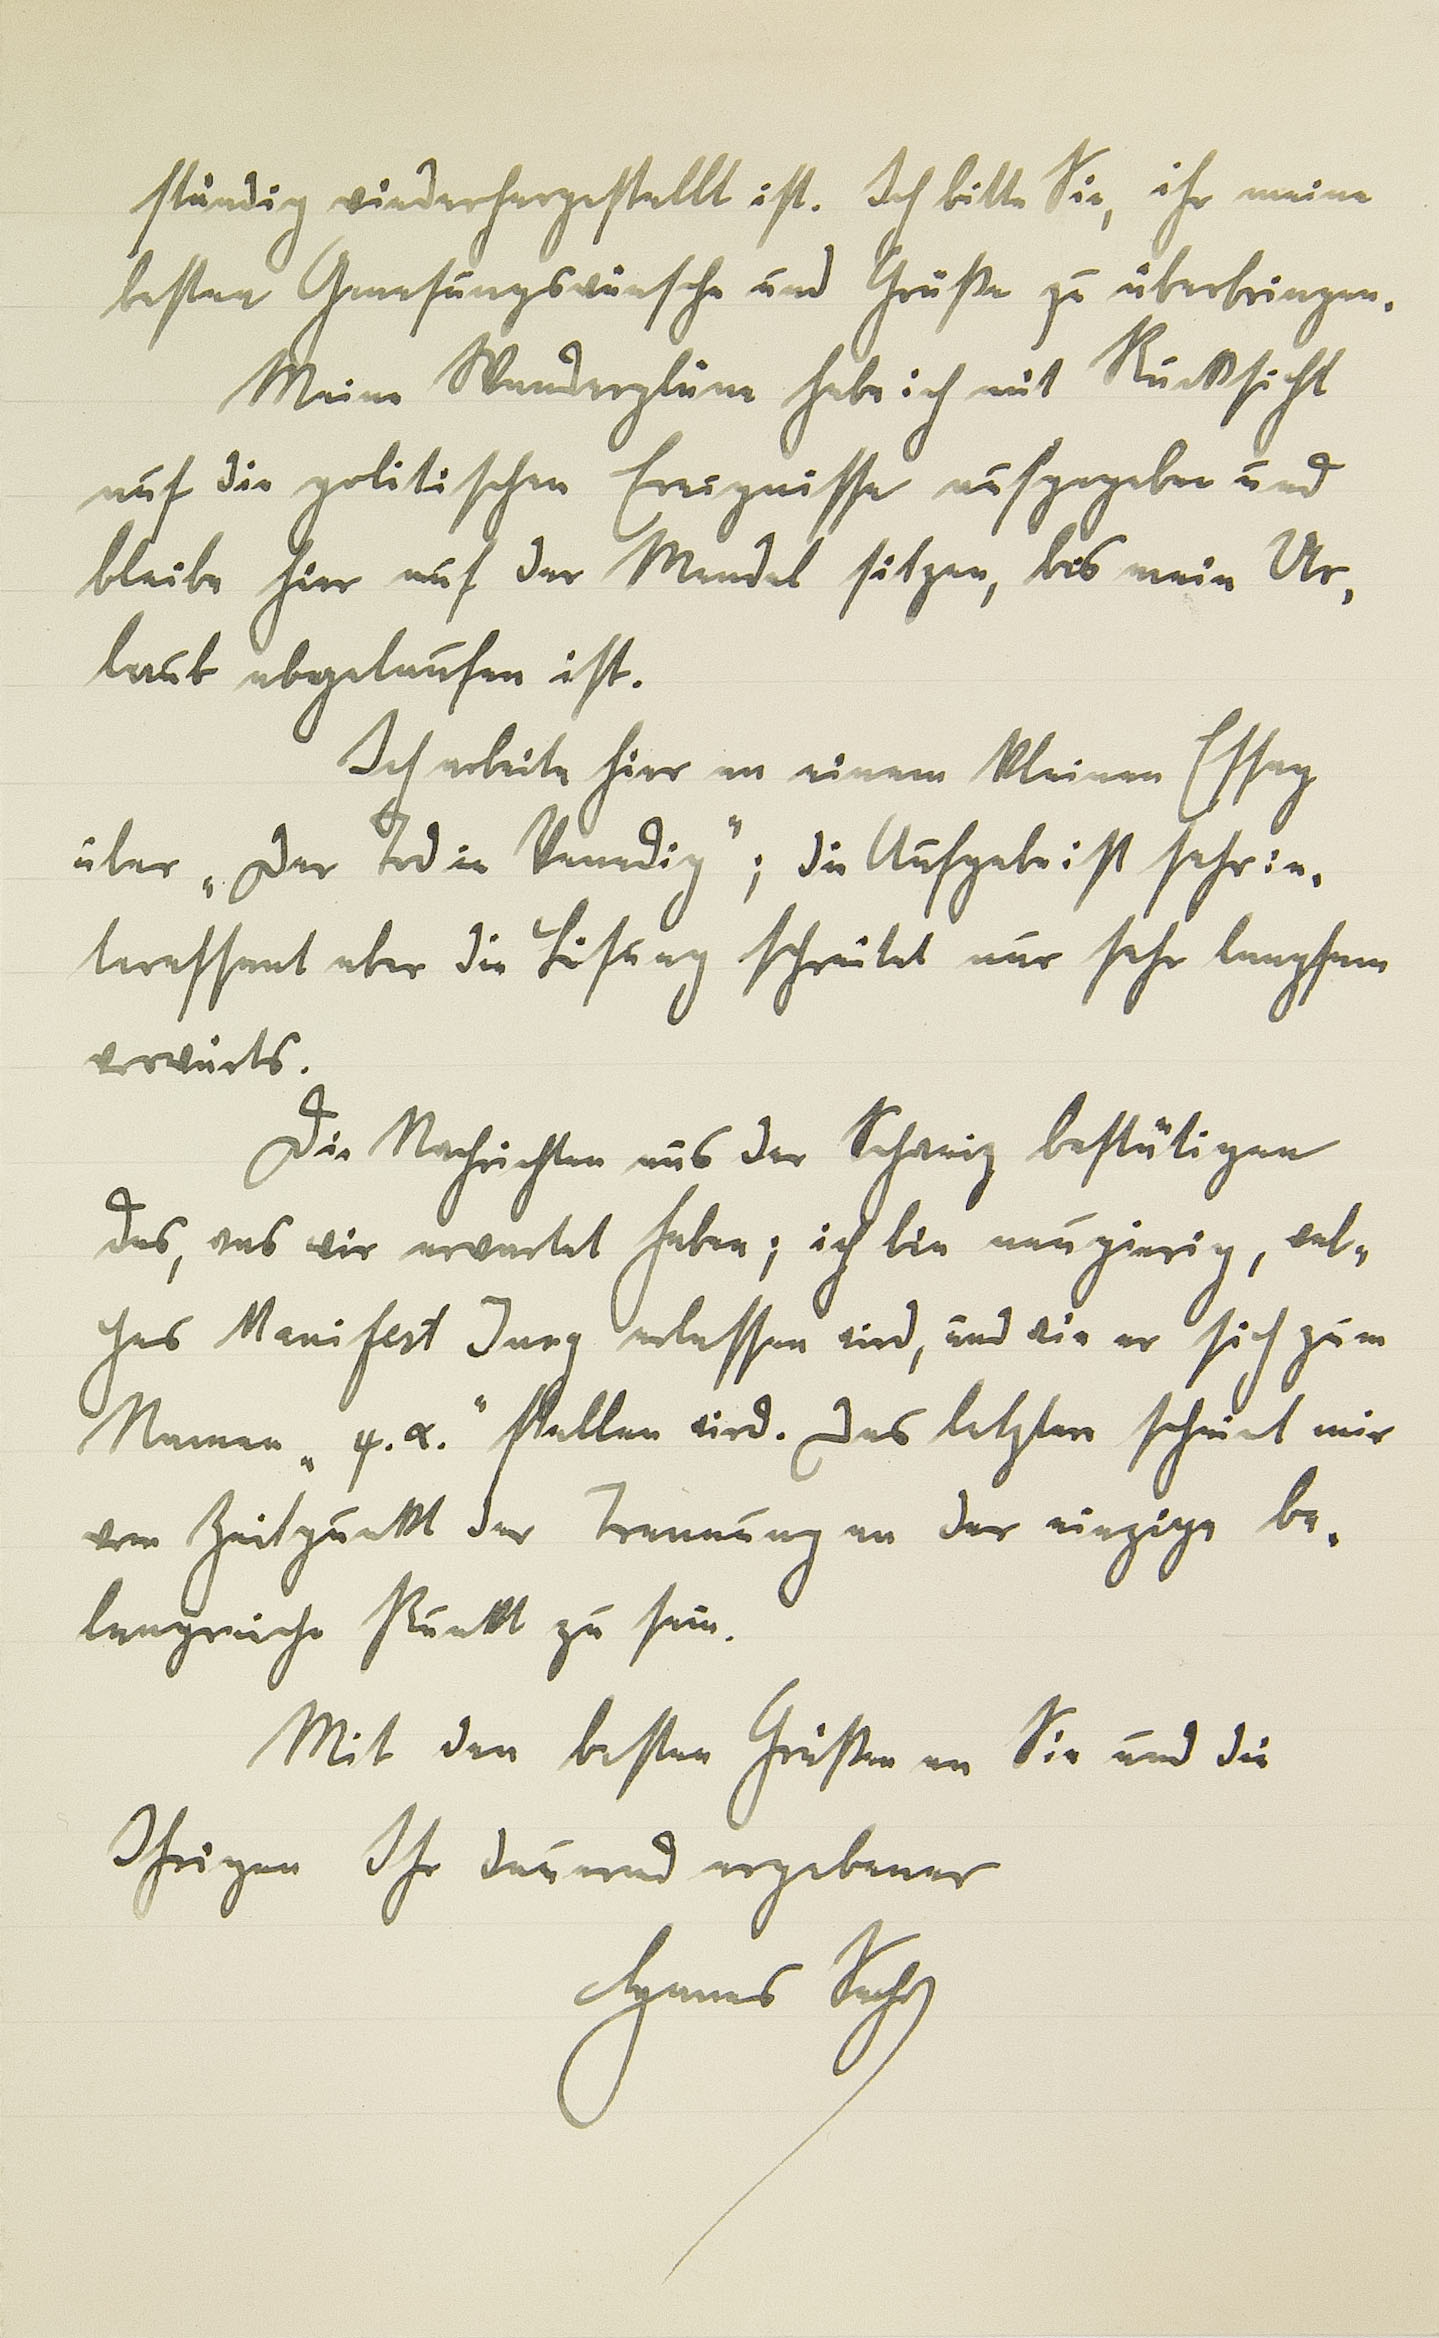 ständig wiederhergestellt ist. Ich bitte Sie, ihr meine
besten Genesungswünsche und Grüße zu überbringen.
Meine Wanderpläne habe ich mit Rücksicht
auf die politischen Ereignisse aufgegeben und
bleibe hier auf der Mendel sitzen, bis mein Ur-
laub abgelaufen ist.
Ich arbeite hier an einem kleinen Essay
über „Der Tod in Venedig"; die Aufgabe ist sehr in-
teressant aber die Lösung schreitet nur sehr langsam
vorwärts.
Die Nachrichten aus der Schweiz bestätigen
das, was wir erwartet haben; ich bin neugierig, wel-
ches Manifest Jung erlassen wird, und wie er sich zum
Namen „ψ.α." stellen wird. Das letztere scheint mir
vom Zeitpunkt der Trennung an der einzige be-
langreiche Punkt zu sein.
Mit den besten Grüßen an Sie und die
Ihrigen Ihr dauernd ergebener
Hanns Sachs